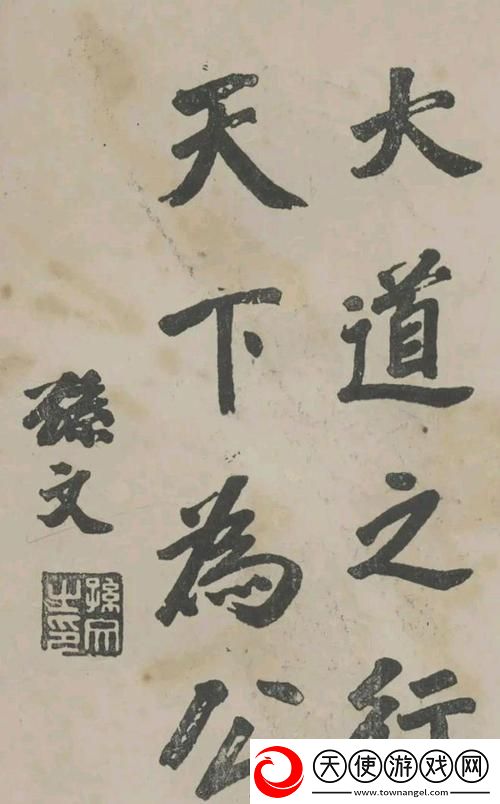 大道之行
天下為公
孫文
孫文之印
天使游戏网
www.townangel.com